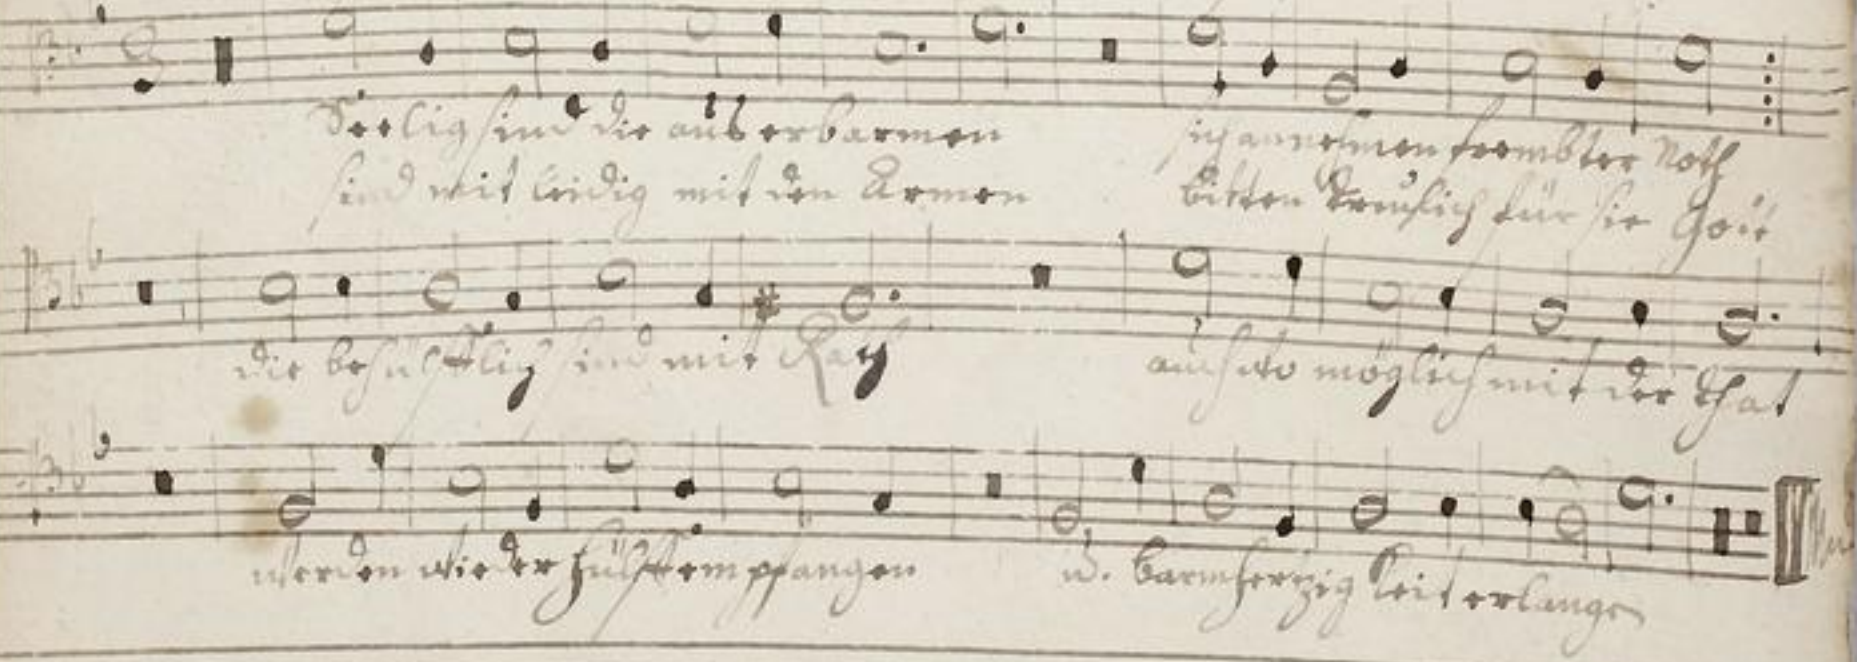 Seelig sind die aus erbarmen sich annehmen frembter Noth
sind mit leidig mit den Armen bitten treulich für sie Gott
die behülfflich sind mit Rath auch wo möglich mit der That
werden wieder hülff empfangen u. barmhertzigkeit erlangen